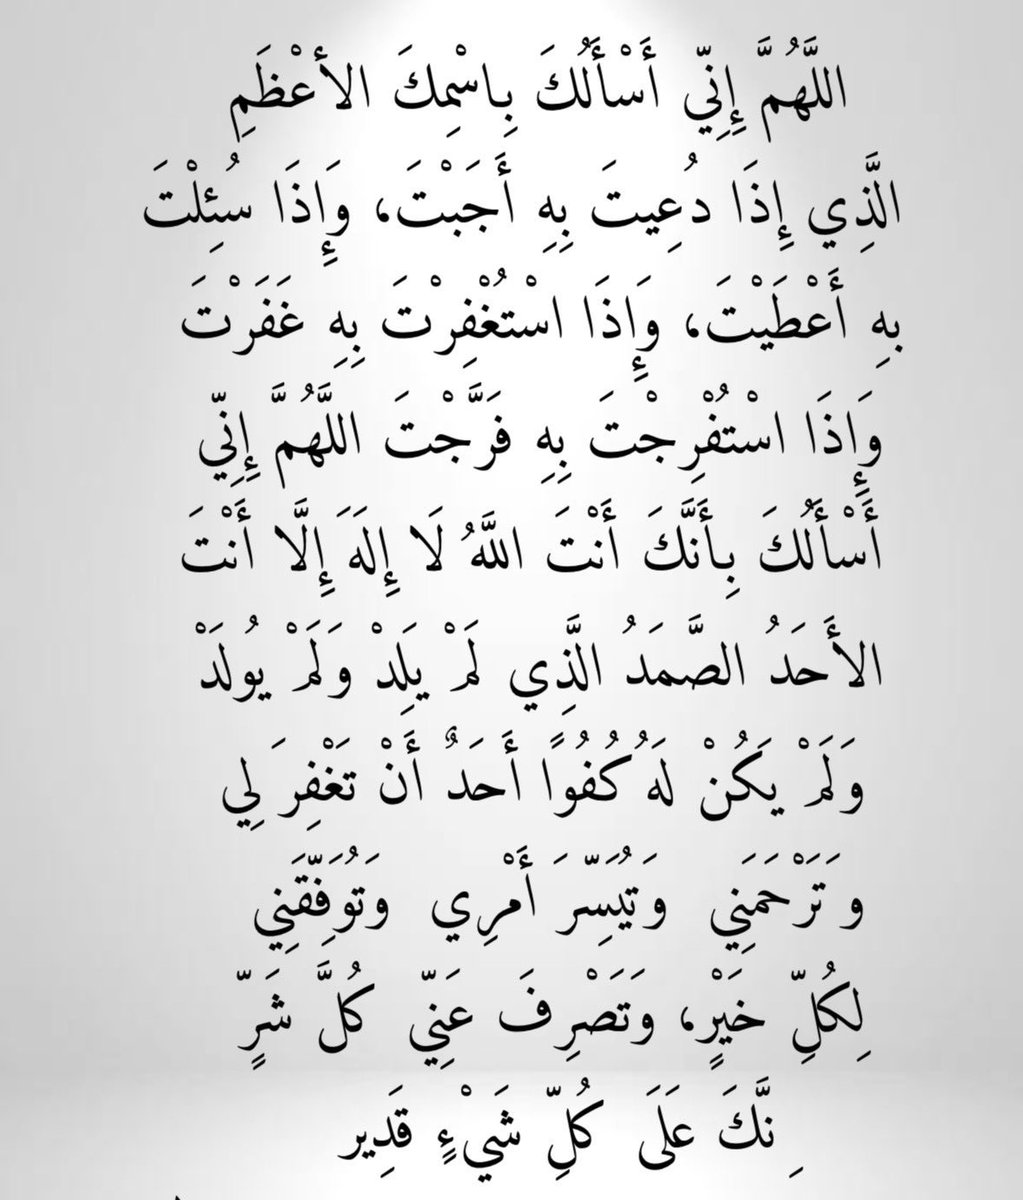 اللَّهُمَّ إِنِّي أَسْأَلُكَ بِاسْمِكَ الأعْظَمِ
الَّذِي إِذَا دُعِيتَ بِهِ أَجَبْتَ، وَإِذَا سُئِلْتَ
بِهِ أَعْطَيْتَ، وَإِذَا اسْتُغْفِرْتَ بِهِ غَفَرْتَ
وَإِذَا اسْتُفْرِجْتَ بِهِ فَرَّجْتَ اللَّهُمَّ إِنِّي
أَسْأَلُكَ بِأَنَّكَ أَنْتَ اللَّهُ لَا إِلَهَ إِلَّا أَنْتَ
الأَحَدُ الصَّمَدُ الَّذِي لَمْ يَلِدْ وَلَمْ يُولَدْ
وَلَمْ يَكُنْ لَهُ كُفُوًا أَحَدٌ أَنْ تَغْفِرَ لِي
وَتَرْحَمَنِي وَتُيَسِّرَ أَمْرِي وَتُوَفِّقَنِي
لِكُلِّ خَيْرٍ، وَتَصْرِفَ عَنِّي كُلَّ شَرٍّ
ِنَّكَ عَلَى كُلِّ شَيْءٍ قَدِير